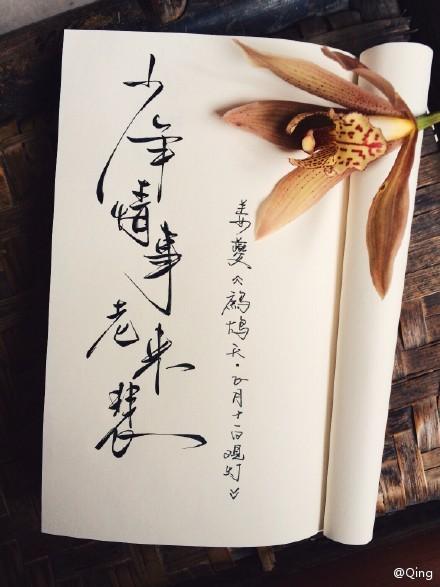 少年情事老来悲
姜夔《鹧鸪天·正月十一日观灯》
@Qing